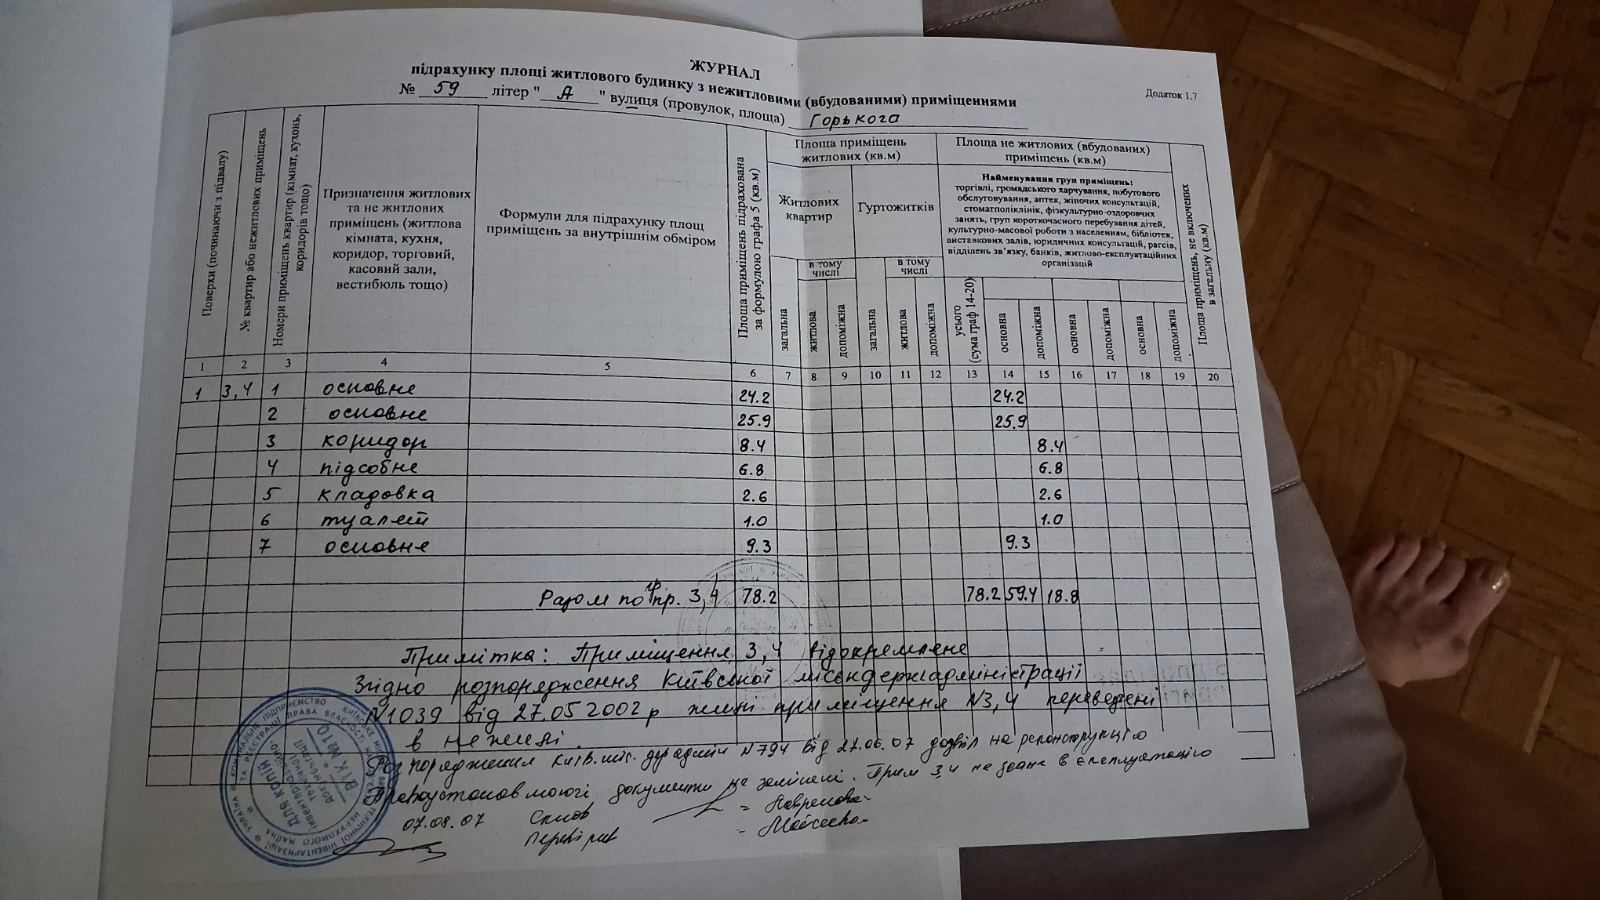 ЖУРНАЛ
підрахунку площі житлового будинку з нежитловими (вбудованими) приміщеннями
Додаток 1.7
№ 59 літер "А" вулиця (провулок, площа) Горького
Поверхи (починаючи з підвалу)
№ квартир або нежитлових приміщень
Номери приміщень квартир (кімнат, кухонь, коридорів тощо)
Призначення житлових та не житлових приміщень (житлова кімната, кухня, коридор, торговий, касовий зали, вестибюль тощо)
Формули для підрахунку площ приміщень за внутрішнім обміром
Площа приміщень підрахована за формулою графа 5 (кв.м)
Площа приміщень житлових (кв.м)
Житлових квартир
Гуртожитків
загальна
в тому числі
житлова
допоміжна
загальна
в тому числі
житлова
допоміжна
Площа не житлових (вбудованих) приміщень (кв.м)
Найменування груп приміщень:
торгівлі, громадського харчування, побутового
обслуговування, аптек, жіночих консультацій,
стоматполіклінік, фізкультурно-оздоровчих
занять, груп короткочасного перебування дітей,
культурно-масової роботи з населенням, бібліотек,
виставкових залів, юридичних консультацій, рагсів,
відділень зв'язку, банків, житлово-експлуатаційних
організацій
усього (сума граф 14-20)
основна
допоміжна
основна
допоміжна
основна
допоміжна
Площа приміщень, не включених в загальну (кв.м)
1 2 3 4 5 6 7 8 9 10 11 12 13 14 15 16 17 18 19 20
1 3,4 1 основне 24.2 24.2
2 основне 25.9 25.9
3 коридор 8.4 8.4
4 підсобне 6.8 6.8
5 кладовка 2.6 2.6
6 туалет 1.0 1.0
7 основне 9.3 9.3
Разом по гр пр. 3,4 78.2 78.2 59.4 18.8
Примітка: Приміщення 3,4 відокремлене
Згідно розпорядження Київської міськдержадміністрації
N1039 від 27.05 2002р жилі приміщення N3,4 переведені
в нежилі.
Розпорядження Київ.міс. держадмін N794 від 27.06.07 дозвіл на реконструкцію
Правоустановлюючі документи не замінені. Прим 3,4 не здане в експлуатацію
07.08.07
Перевірив
ДЛЯ КОПІЙ